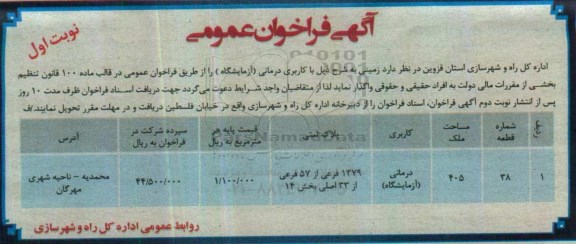 آگهی فراخوان عمومی
نوبت اول
اداره کل راه و شهرسازی استان قزوین در نظر دارد زمینی به شرح ذیل با کاربری درمانی (آزمایشگاه) را از طریق فراخوان عمومی در قالب ماده ۱۰۰ قانون تنظیم
بخشی از مقررات مالی دولت به افراد حقیقی و حقوقی واگذار نماید لذا از متقاضیان واجد شرایط دعوت می‌گردد جهت دریافت اسناد فراخوان ظرف مدت ۱۰ روز
پس از انتشار نوبت دوم آگهی فراخوان، اسناد فراخوان را از دبیرخانه اداره کل راه و شهرسازی واقع در خیابان فلسطین دریافت و در مهلت مقرر تحویل نمایند./ف
ردیف شماره قطعه مساحت ملک کاربری پلاک ثبتی قیمت پایه هر مترمربع به ریال سپرده شرکت در فراخوان به ریال آدرس
۱ ۳۸ ۴۰۵ درمانی (آزمایشگاه) ۱۳۷۹ فرعی از ۵۷ فرعی از ۳۳ اصلی بخش ۱۴ ۱/۱۰۰/۰۰۰ ۴۴/۵۰۰/۰۰۰ محمدیه - ناحیه شهری مهرگان
روابط عمومی اداره کل راه و شهرسازی